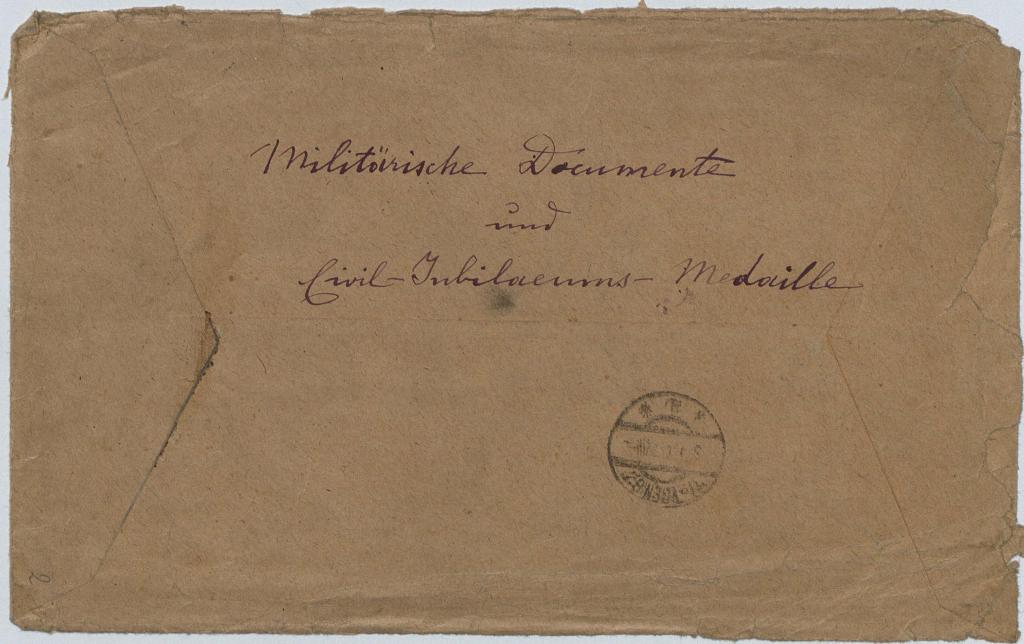 Militärische Documente
und
Civil-Jubilaeums-Medaille
2